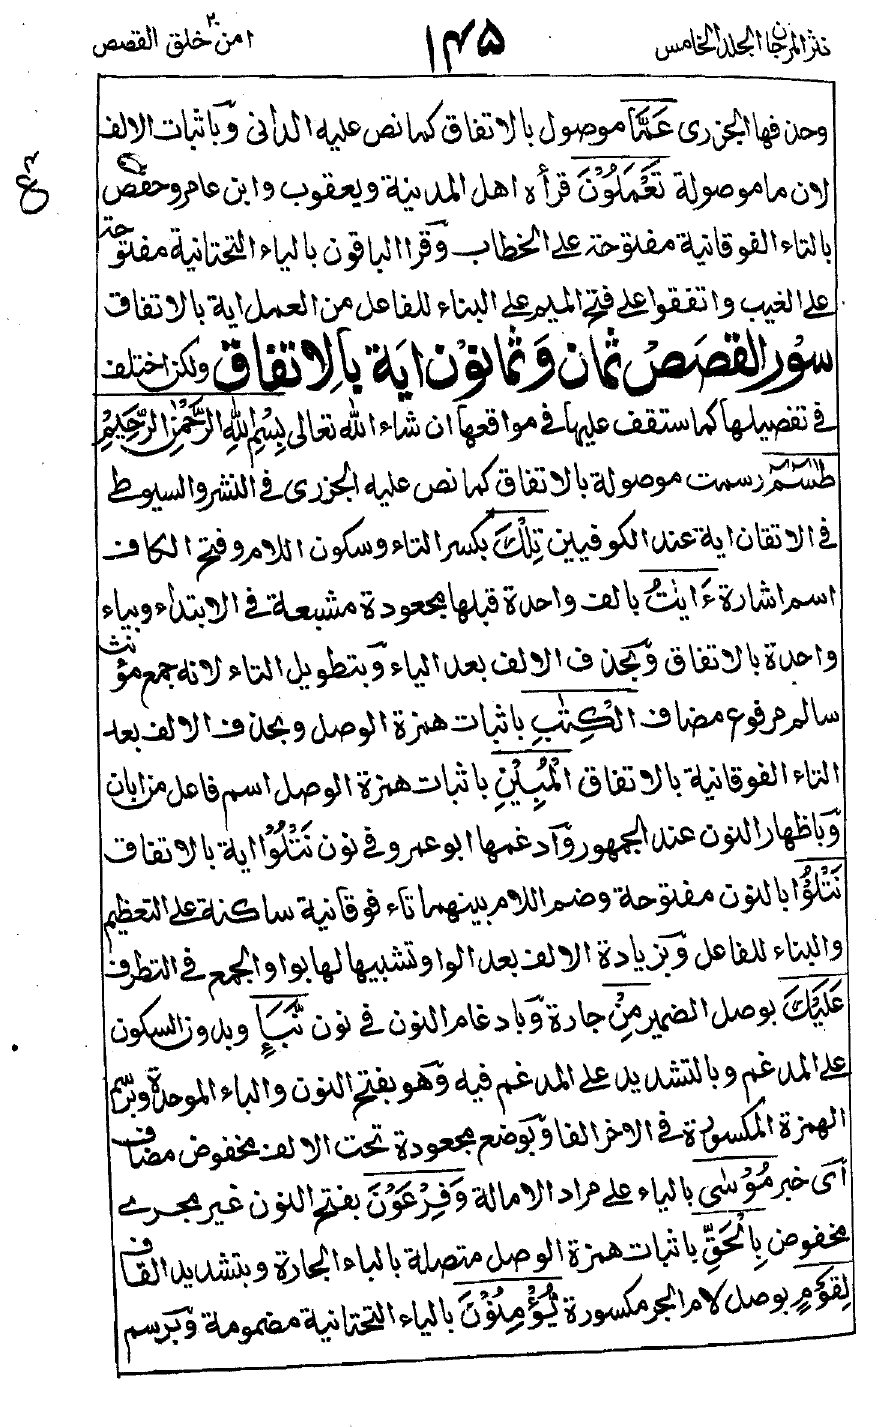 نثر المرجان الجلد الخامس ١٤٥ امن خلق ٢٠ القصص
وحذفها الجزرى عَمَّا موصول بالاتفاق كما نص عليه الدانى وَباثبات الالف
لان ما موصولة تَعْمَلُوْنَ قرأه اهل المدينة ويعقوب وابن عامر وحفص
ع
بالتاء الفوقانية مفتوحة على الخطاب وَقرا الباقون بالياء التحتانية مفتوحة
على الغيب واتفقوا على فتح الميم على البناء للفاعل من العمل اية بالاتفاق
سورالقصص ثمان وَثمانون اية بالاتفاق ولكن اختلف
فى تفصيلها كما ستقف عليها فى مواقعها ان شاء الله تعالى بِسْمِ اللهِ الرَّحْمٰنِ الرَّحِيْمِ
طٰسٓمّٓ رسمت موصولة بالاتفاق كما نص عليه الجزرى فى النشر والسيوطى
فى الاتقان اية عند الكوفيين تِلْكَ بكسر التاء وسكون اللام وفتح الكاف
اسم اشارة ءَايٰتُ بالف واحدة قبلها مجعودة مشبعة فى الابتداء وبياء
واحدة بالاتفاق وَبحذف الالف بعد الياء وَبتطويل التاء لانه جمع مؤنث
سالم مرفوع مضاف الْكِتٰبِ باثبات همزة الوصل وبحذف الالف بعد
التاء الفوقانية بالاتفاق الْمُبِيْنِ باثبات همزة الوصل اسم فاعل من ابان
وَباظهار النون عند الجمهور وَادغمها ابو عمرو فى نون نَتْلُوْا اية بالاتفاق
نَتْلُوْا بالنون مفتوحة وضم اللام بينهما تاء فوقانية ساكنة على التعظيم
والبناء للفاعل وَبزيادة الالف بعد الواو تشبيها لها بواو الجمع فى التطرف
عَلَيْكَ بوصل الضمير مِنْ جارة وَبادغام النون فى نون نَّبَإِ وبدون السكون
على المدغم وبالتشديد على المدغم فيه وَهو بفتح النون والباء الموحدة وبرسم
الهمزة المكسورة فى الاخر الفا وَبوضع مجعودة تحت الالف مخفوض مضاف
اَى خبر مُوْسٰى بالياء على مراد الامالة وَفِرْعَوْنَ بفتح النون غير مجرى
مخفوض بِالْحَقِّ باثبات همزة الوصل متصلة بالباء الجارة وبتشديد القاف
لِقَوْمٍ بوصل لام الجر مكسورة يُؤْمِنُوْنَ بالياء التحتانية مضمومة وَبرسم